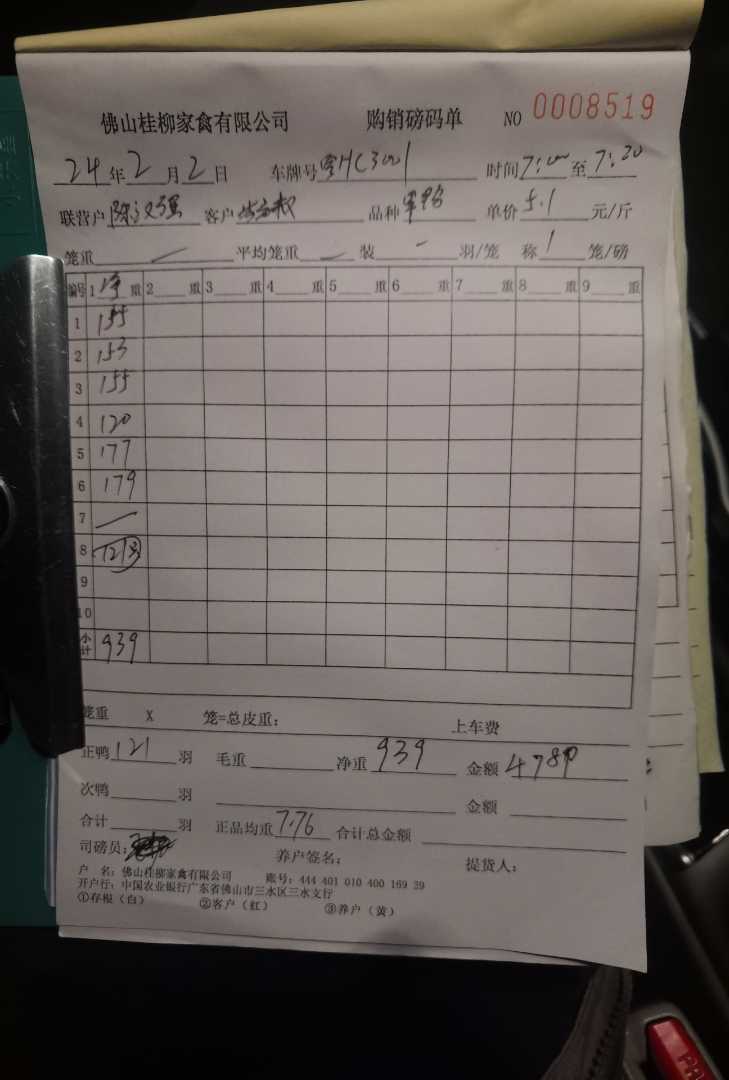 佛山桂柳家禽有限公司 购销磅码单 NO 0008519
24年2月2日 车牌号 HC3001 时间7:00至7:20
联营户 陈汉强 客户 品种 单价5.1元/斤
笼重 — 平均笼重 — 装 — 羽/笼 称1笼/磅
编号 1净重 2 重 3 重 4 重 5 重 6 重 7 重 8 重 9 重
1 155
2 153
3 155
4 120
5 177
6 179
7 —
8 121只
9
10
小计 939
笼重 X 笼=总皮重: 上车费
正鸭121羽 毛重 净重939 金额4789
次鸭 羽 金额
合计 羽 正品均重7.76 合计总金额
司磅员: 养户签名: 提货人:
户 名: 佛山桂柳家禽有限公司 账号: 444 401 010 400 169 39
开户行: 中国农业银行广东省佛山市三水区三水支行
①存根(白) ②客户(红) ③养户(黄)